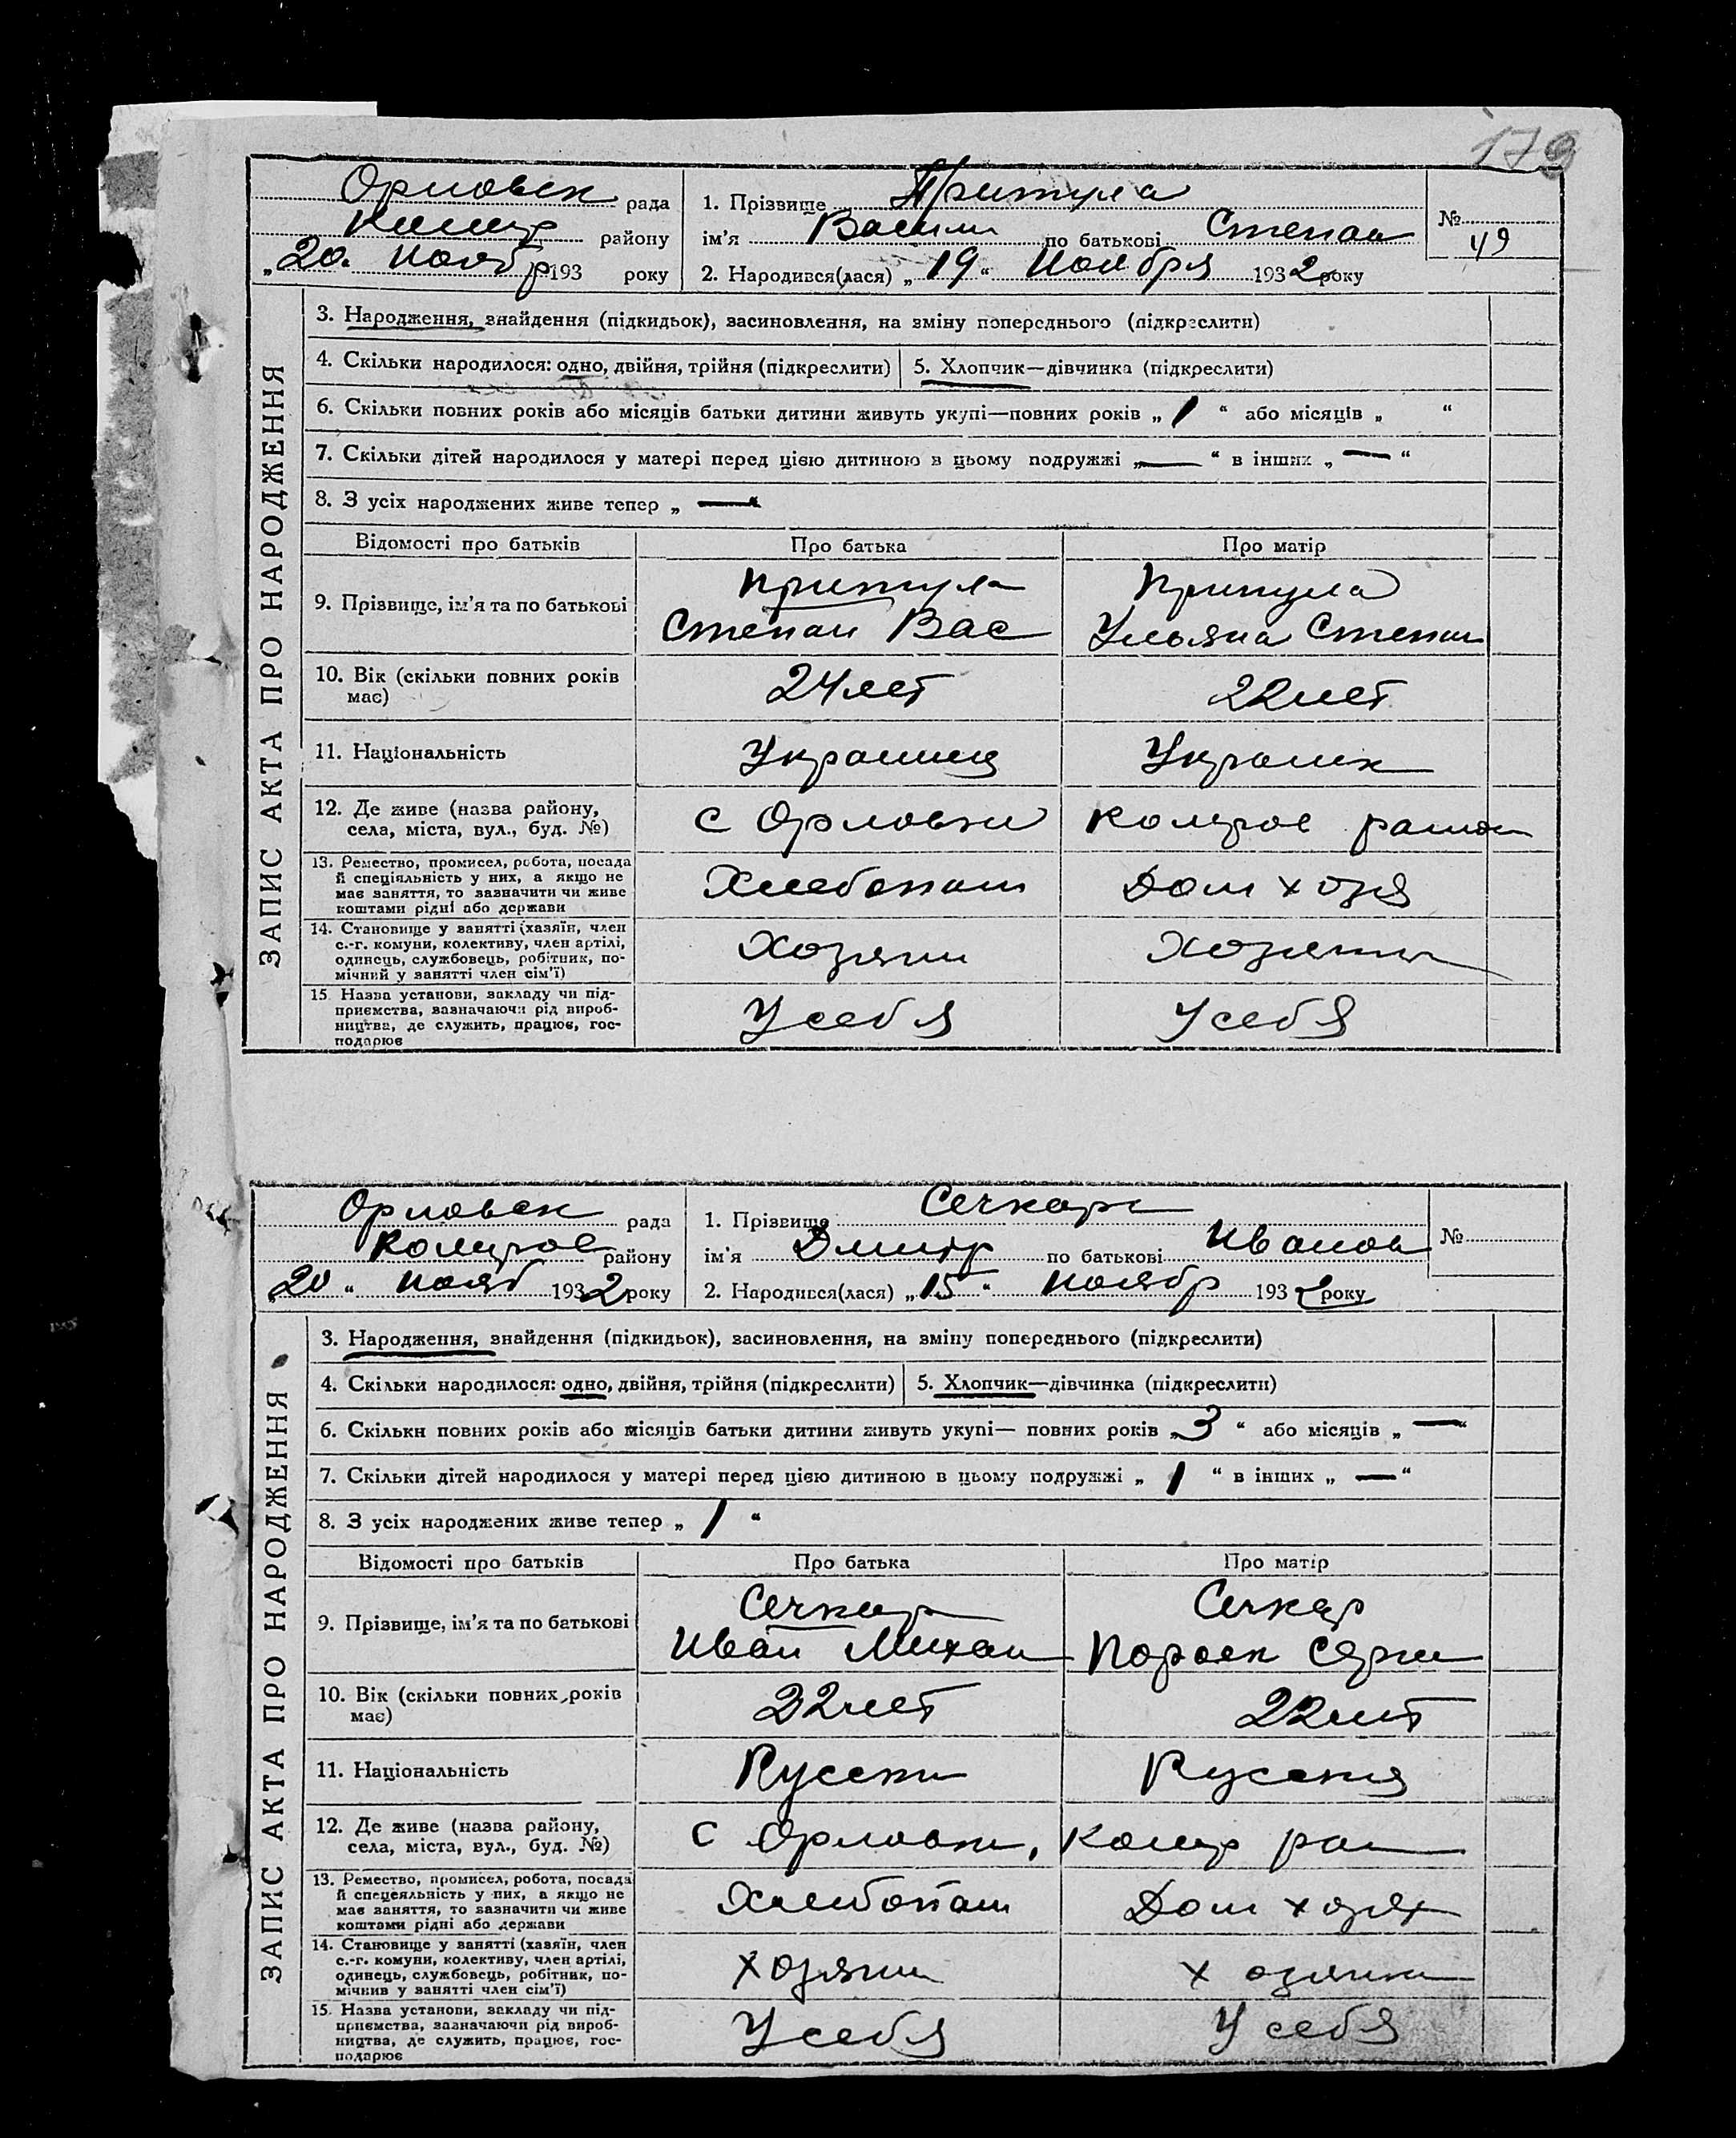 173
Орловск рада
району
„20. Ноябр 193 року
1. Прізвище Притула
ім'я Васили по батькові Степан
2. Народився(лася) „19“ Ноября 1932 року
№ 49
ЗАПИС АКТА ПРО НАРОДЖЕННЯ
3. Народження, знайдення (підкидьок), засиновлення, на зміну попереднього (підкреслити)
4. Скільки народилося: одно, двійня, трійня (підкреслити)
5. Хлопчик—дівчинка (підкреслити)
6. Скільки повних років або місяців батьки дитини живуть укупі—повних років „1“ або місяців „ “
7. Скільки дітей народилося у матері перед цією дитиною в цьому подружжі „—“ в інших „—“
8. З усіх народжених живе тепер „—“
Відомості про батьків Про батька Про матір
9. Прізвище, ім'я та по батькові
Притула Притула
Степан Вас Ульяна Степан
10. Вік (скільки повних років
має)
24 лет 22 лет
11. Національність Украинц Украинк
12. Де живе (назва району,
села, міста, вул., буд. №)
с Орловки Коларов район
13. Ремество, промисел, робота, посада
й спеціяльність у них, а якщо не
має заняття, то зазначити чи живе
коштами рідні або держави
Хлебопаш Дом хозя
14. Становище у занятті (хазяїн, член
с.-г. комуни, колективу, член артілі,
одинець, службовець, робітник, по-
мічний у занятті член сім'ї)
Хозяин Хозяика
15. Назва установи, закладу чи під-
приємства, зазначаючи рід вироб-
ництва, де служить, працює, гос-
подарює
У себя У себя
Орловск рада
Коларов району
20 „ Нояб 1932 року
1. Прізвище Сечкарь
ім'я Дмитр по батькові Иванов
2. Народився(лася) „15“ Ноябр 1932 року
№
ЗАПИС АКТА ПРО НАРОДЖЕННЯ
3. Народження, знайдення (підкидьок), засиновлення, на зміну попереднього (підкреслити)
4. Скільки народилося: одно, двійня, трійня (підкреслити)
5. Хлопчик—дівчинка (підкреслити)
6. Скільки повних років або місяців батьки дитини живуть укупі— повних років „3“ або місяців „—“
7. Скільки дітей народилося у матері перед цією дитиною в цьому подружжі „1“ в інших „—“
8. З усіх народжених живе тепер „1“
Відомості про батьків Про батька Про матір
9. Прізвище, ім'я та по батькові
Сечкар Сечкар
Иван Михаи
10. Вік (скільки повних років
має)
22 лет
11. Національність Русски Русская
12. Де живе (назва району,
села, міста, вул., буд. №)
с Орловки, Колар рай
13. Ремество, промисел, робота, посада
й спецеяльність у них, а якщо не
має заняття, то зазначити чи живе
коштами рідні або держави
Хлебопаш Дом хозя
14. Становище у занятті (хазяїн, член
с.-г. комуни, колективу, член артілі,
одинець, службовець, робітник, по-
мічний у занятті член сім'ї)
хозяин хозяика
15. Назва установи, закладу чи під-
приємства, зазначаючи рід вироб-
ництва, де служить, працює, гос-
подарює
У себя У себя